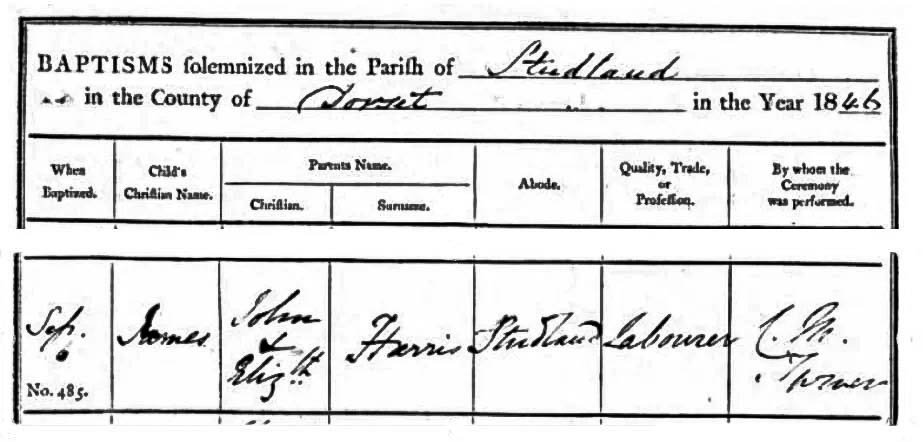 BAPTISMS ſolemnized in the Pariſh of Studland
in the County of Dorset in the Year 1846
When Baptized.
Child's Chriſtian Name.
Parents Name.
Chriſtian.
Surname.
Abode.
Quality, Trade, or Profeſſion.
By whom the Ceremony was performed.
Sep. 6
No. 485.
James
John & Elizth
Harris
Studland
Labourer